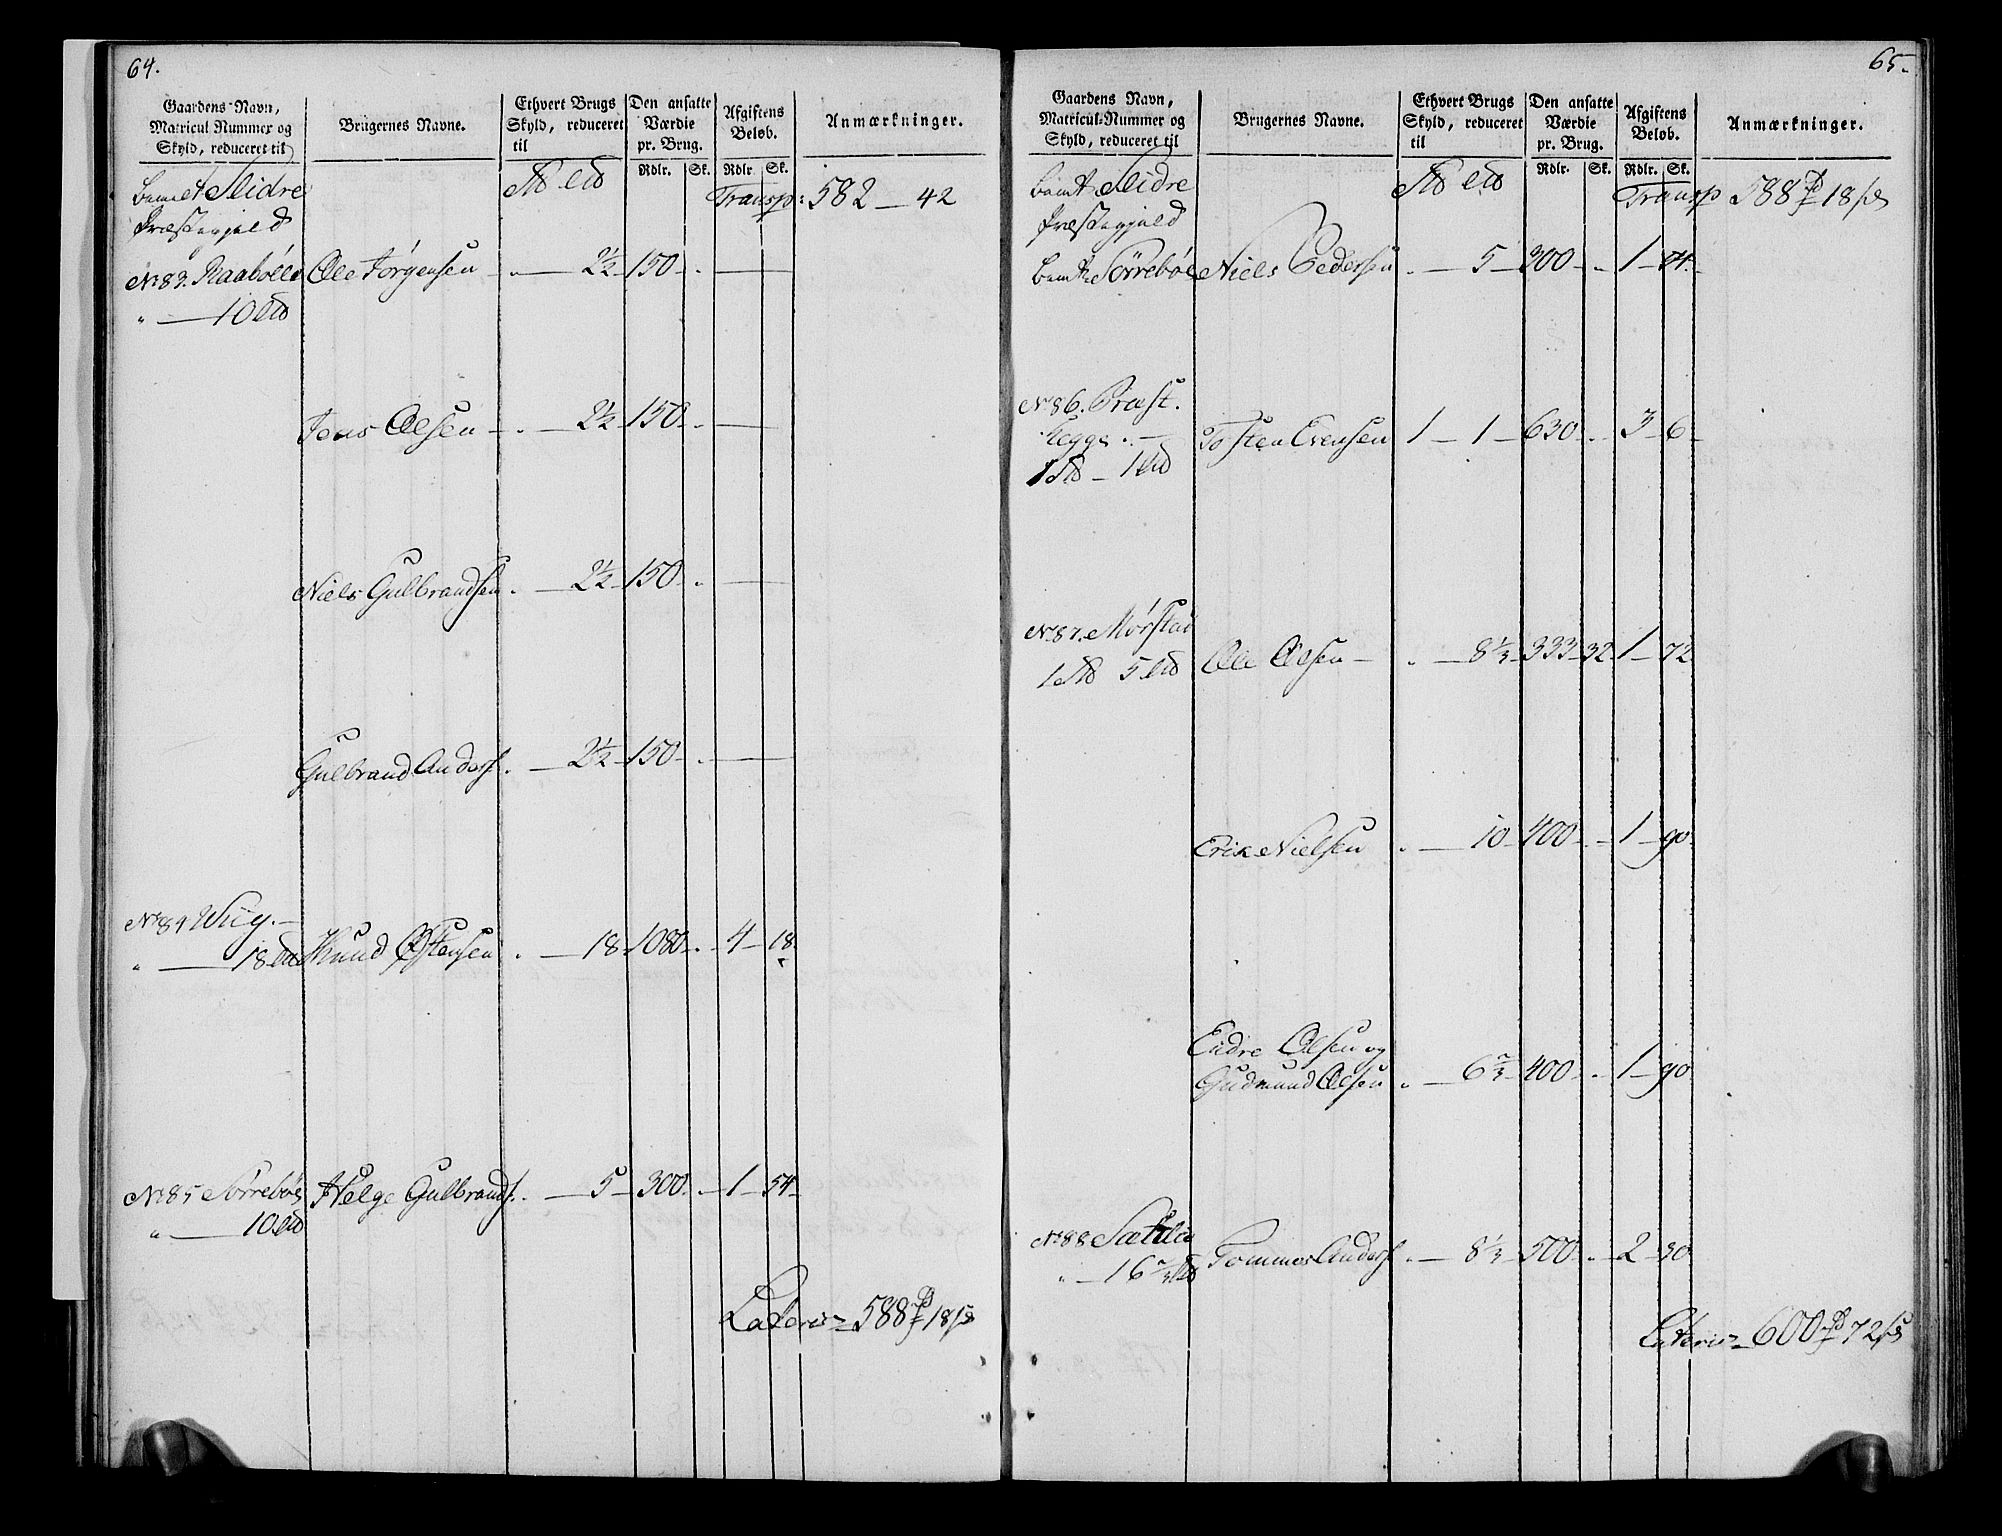 64.
Gaardens Navn,
Matricul Nummer og
Skyld, reduceret til
Brugernes Navne.
Ethvert Brugs
Skyld, reduceret
til
Den ansatte
Værdie
pr. Brug.
Rdlr. Sk.
Afgiftens
Beløb.
Rdlr. Sk.
Anmærkninger.
bemt Slidre
Præstegjeld
Transp: 582 - 42
No 83. Raabølle Ole Jörgensen - " - 2½ - 150 - " -
" - 10
Jens Olsen - " - 2½ - 150 - " -
Niels Gulbrandsen " - 2½ - 150 - " -
Gulbrand Anders. " - 2½ - 150 - " -
No 84 Wiig. -
" - 18 Knud Østensen " - 18 - 1080 - " - 4 - 18
No 85 Sørrebøe Helge Gulbrands. " - 5 - 300 - " - 1 - 54 -
" - 10
Lateris = 588 18 s
65.
Gaardens Navn,
Matricul-Nummer og
Skyld, reduceret til
Brugernes Navne.
Ethvert Brugs
Skyld, reduceret
til
Den ansatte
Værdie
pr. Brug.
Rdlr. Sk.
Afgiftens
Beløb.
Rdlr. Sk.
Anmærkninger.
bemt Slidre
Præstegjeld
Transp 588 18 s
bemt Sörrebøe Niels Pedersen " - 5 - 300 - " - 1 -
No 86. Præst.
Tosten Evensen 1 - 1 - 630 - " - 3 - 6 -
1 - 1
No 87. Mörstad
1 5 Ole Olsen - " - 8⅓ - 333 - 32 1 - 72
Erik Nielsen " - 10 - 400 - " - 1 - 90
Endre Olsen og
Gudmund Olsen " - 6⅔ - 400 - " - 1 - 90
No 88
" - 16⅔ Tommes Anders. " - 8⅓ - 500 - " - 2 - 30
Lateris = 600 72 s